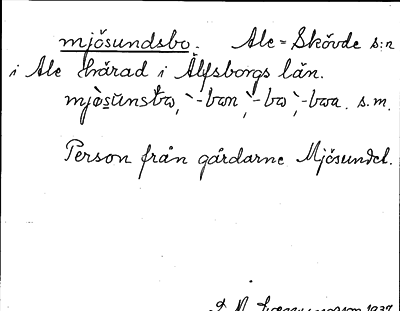 mjösundsbo. Ale-Skövde s:n
i Ale härad i Älfsborgs län.
-bon -bo -boa. s.m.
Person från gårdarne Mjösundet.
1937